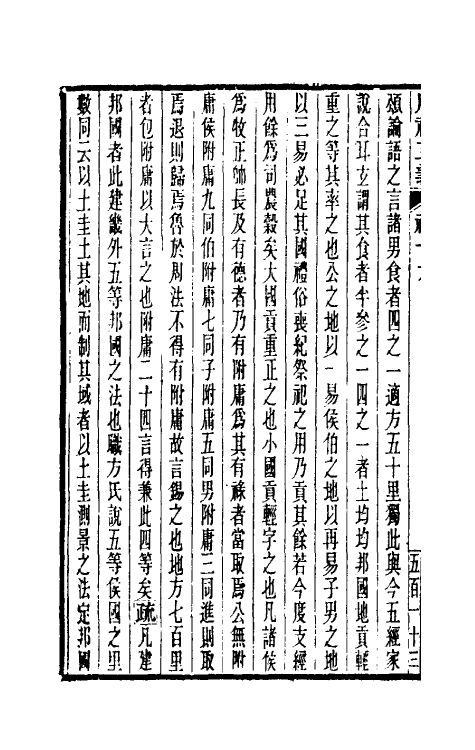 周禮正義 禮十九
五百一十三
頌論語之言諸男食者四之一適方五十里獨此與今五經家
說合耳玄謂其食者半參之一四之一者土均均邦國地貢輕
重之等其率之也公之地以一易侯伯之地以再易子男之地
以三易必足其國禮俗喪紀祭祀之用乃貢其餘若今度支經
用餘爲司農穀矣大國貢重正之也小國貢輕字之也凡諸侯
爲牧正帥長及有德者乃有附庸爲其有祿者當取焉公無附
庸侯附庸九同伯附庸七同子附庸五同男附庸三同進則取
焉退則歸焉魯於周法不得有附庸故言錫之也地方七百里
者包附庸以大言之也附庸二十四言得兼此四等矣疏凡建
邦國者此建畿外五等邦國之法也職方氏說五等侯國之里
數同云以土圭土其地而制其域者以土圭測景之法定邦國